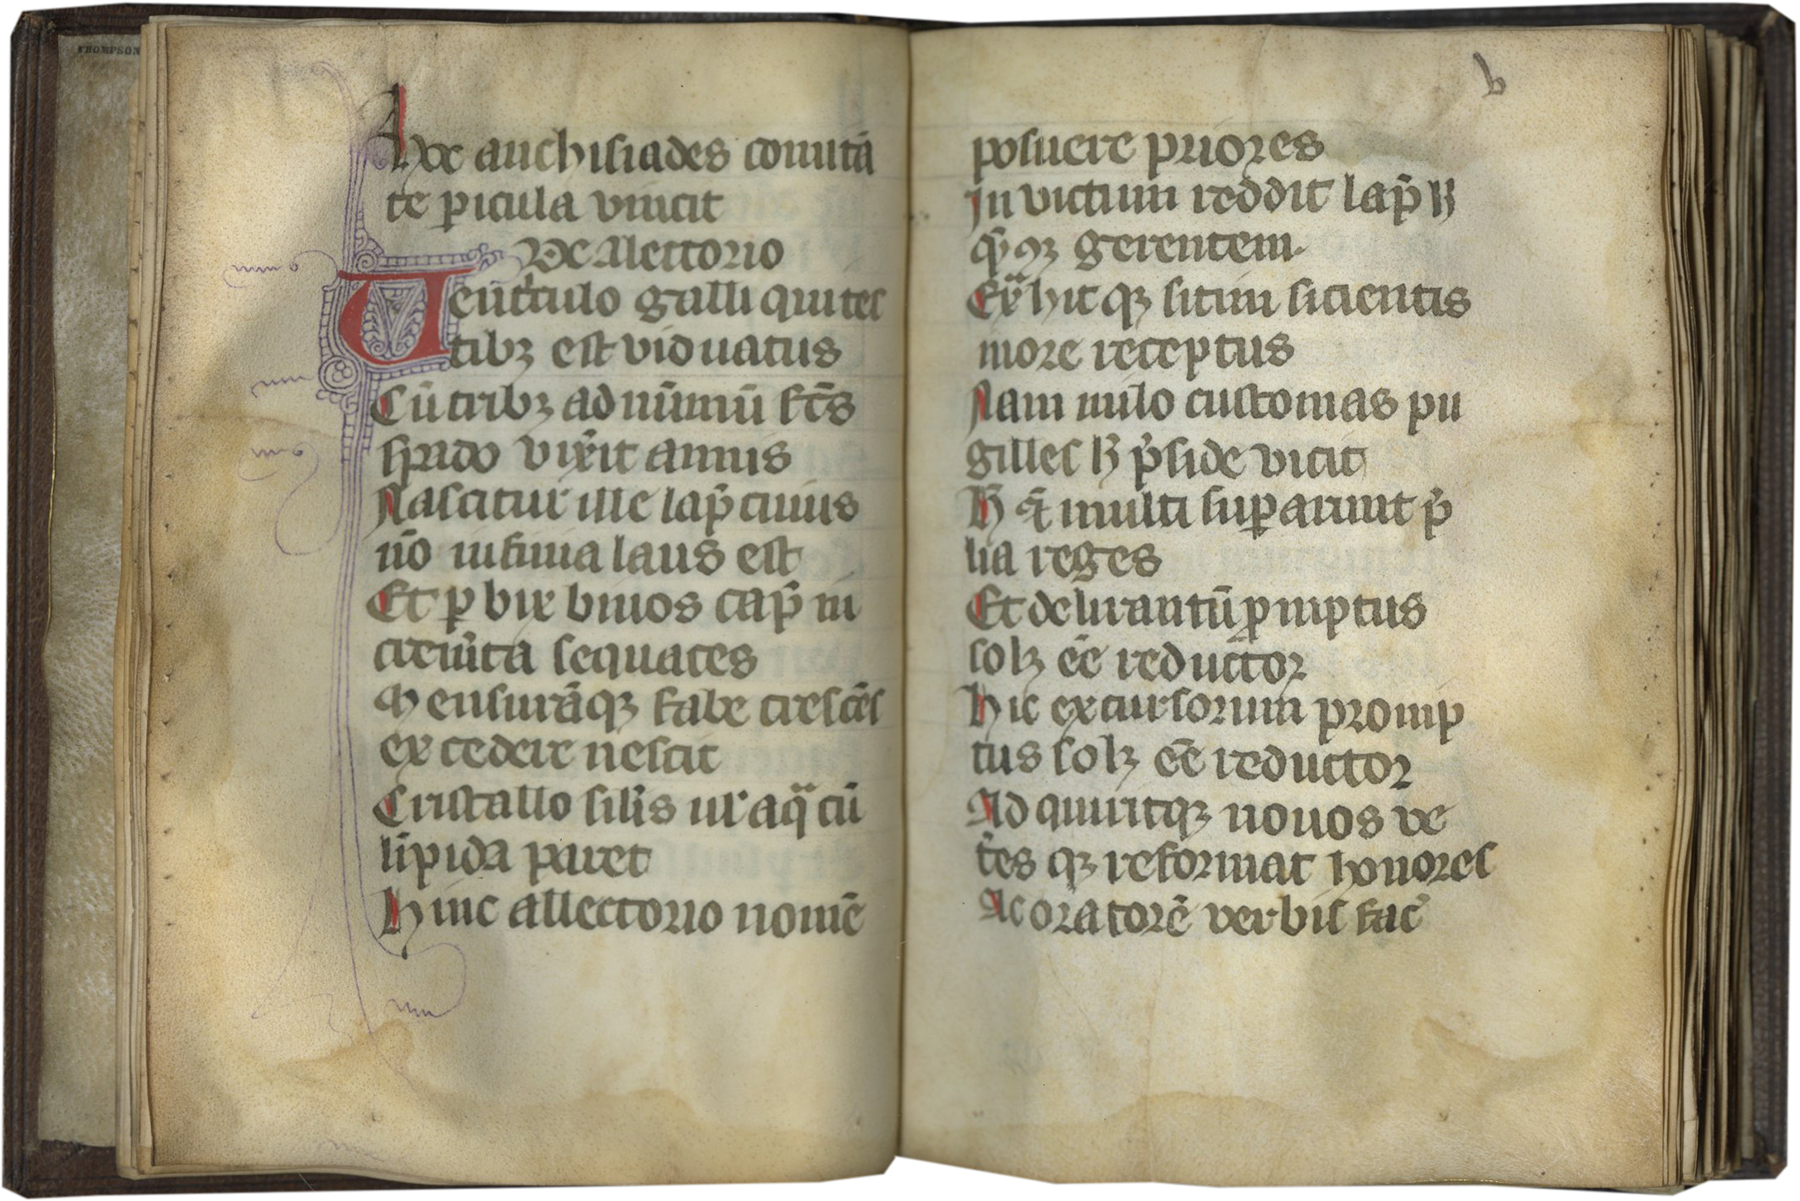 THOMPSON
Hoc anchisiades comitā
te picula vincit
De Alectorio
Uent̾culo galli qui tes
tibꝫ est viduatus
Cū tribꝫ ad nūmū fcā̄s
spado vix̾it annis
Nascitur ille lap̄ cuius
nō infima laus est
Et ꝑ bix binos cap̄ in
crem̄ta sequaces
Mensurāqꝫ fabe crescēs
excedere nescit
Cristallo sil̾is ul̾ aqͣ cū
līpida paret
Hinc allectorio nomē
b
posuere priores
Invictum reddit lap̄ hꝫ
qͥcqꝫ gerentem
Exͣhitqꝫ sitim sicientis
more receptus
Nam milo custonias pu
gilles hꝫ p̄side vicit
Hͦ ⁊ multi suꝑarunt p̄
lia reges
Et delirantū ꝓmptus
solꝫ eē reductor
hic excursorum promp
tus solꝫ eē reductor
Adquiritqꝫ nouos ve
t̾es qꝫ reformat honores
Ac oratorē verbis fac̄